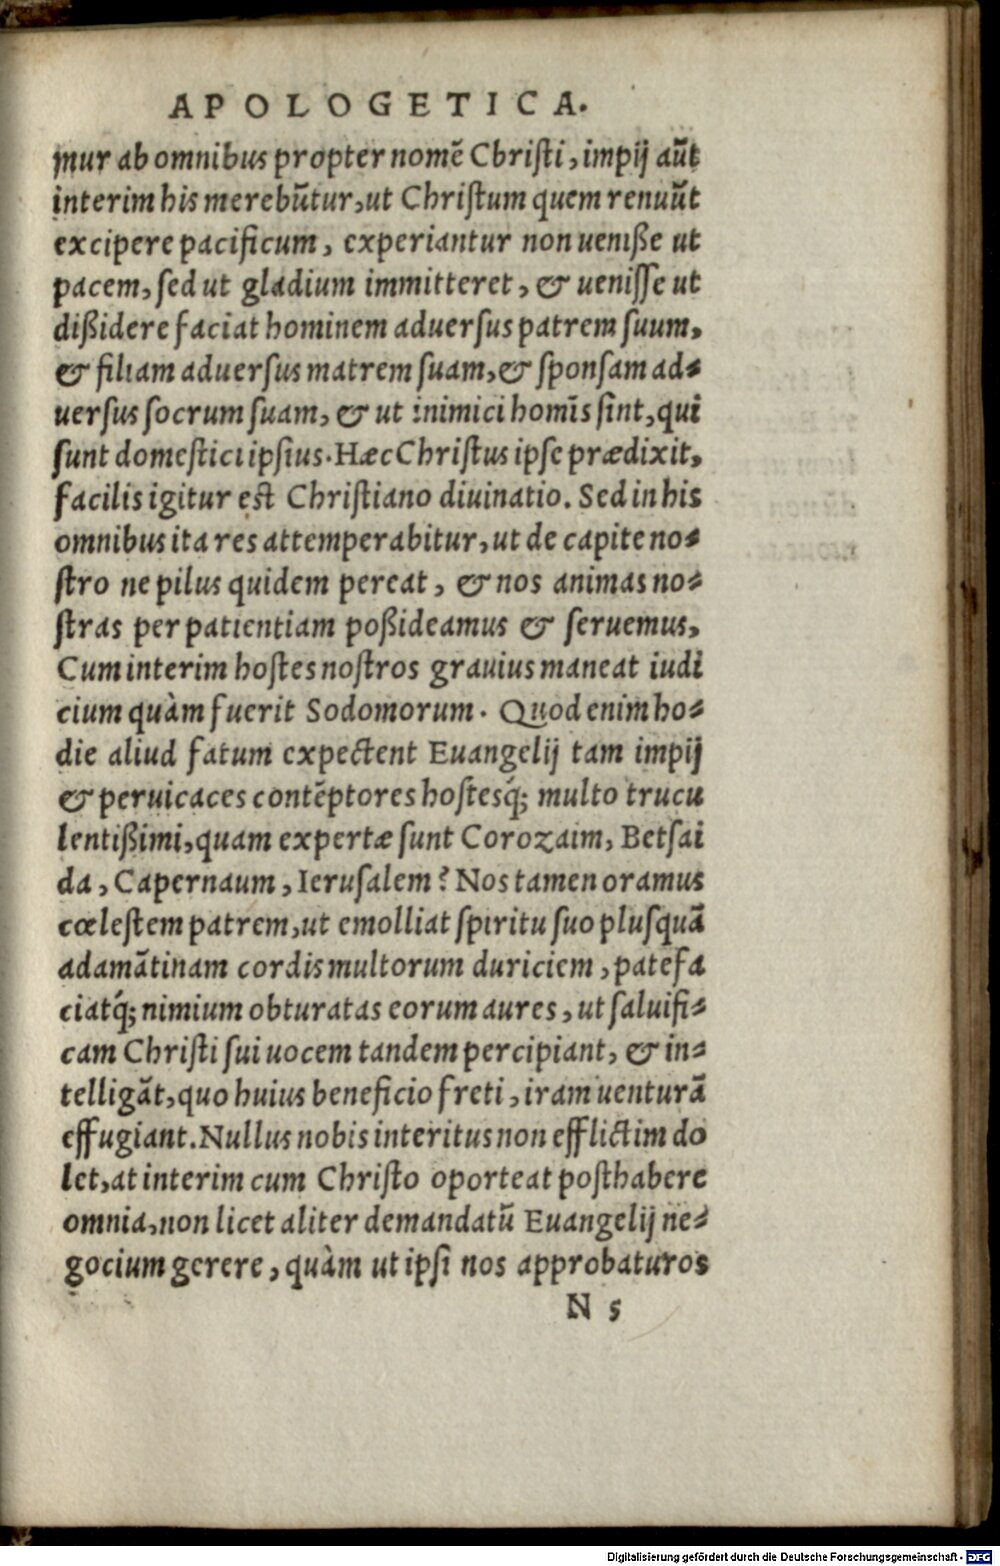 APOLOGETICA.
mur ab omnibus propter nomē Cbristi, impij aūt
interim his merebūtur, ut Christum quem renuūt
excipere pacificum, experiantur non uenißе ut
pacem, sed ut gladium immitteret, & uenisse ut
dißidere faciat hominem aduersus patrem suum,
& filiam aduersus matrem suam, & sponsam ad-
uersus socrum suam, & ut inimici homīs sint, qui
sunt domestici ipsius. Hæc Christus ipse prædixit,
facilis igitur est Christiano diuinatio. Sed in his
omnibus ita res attemperabitur, ut de capite no-
stro ne pilus quidem pereat, & nos animas no-
stras per patientiam poßideamus & seruemus,
Cum interim hostes nostros grauius maneat iudi
cium quàm fuerit Sodomorum. Quod enim ho-
die aliud fatum expectent Euangelij tam impij
& peruicaces contēptores hostesq́; multo trucu
lentißimi, quam expertæ sunt Corozaim, Betsai
da, Capernaum, Ierusalem? Nos tamen oramus
cœlestem patrem, ut emolliat spiritu suo plusquā
adamātinam cordis multorum duriciem, patefa
ciatq́; nimium obturatas eorum aures, ut saluifi-
cam Christi sui uocem tandem percipiant, & in-
telligāt, quo huius beneficio freti, iram uenturā
effugiant. Nullus nobis interitus non efflictim do
let, at interim cum Christo oporteat posthabere
omnia, non licet aliter demandatū Euangelij ne-
gocium gerere, quàm ut ipsi nos approbaturos
N 5
Digitalisierung gefördert durch die Deutsche Forschungsgemeinschaft - DFG